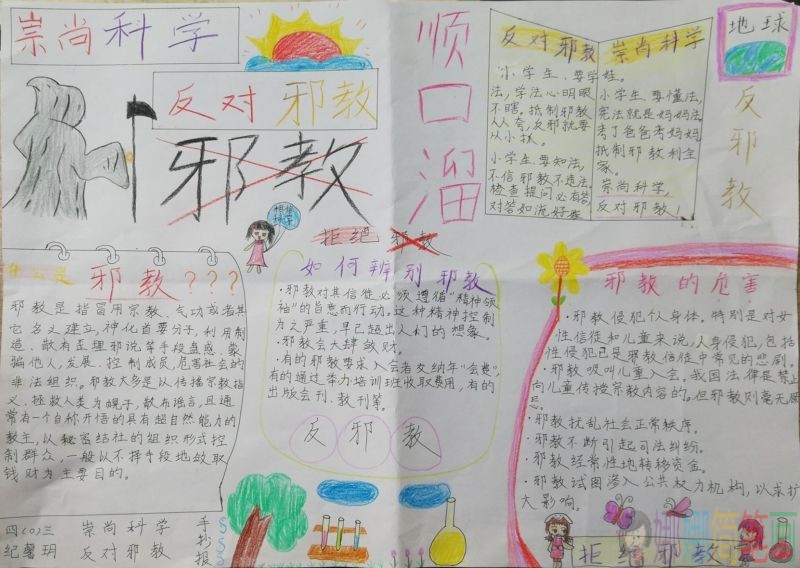 崇尚科学
反对邪教
邪教
相信
科学
拒绝邪教
顺口溜
反对邪教
小学生、要学娃。
法,学法心明眼
不瞎。抵制邪教
人人夸,反邪就要
从小抓。
小学生、要知法,
不信邪教不违法。
检查提问必有答,
对答如流好
崇尚科学
小学生、要懂法,
宪法就是妈妈法。
考了爸爸考妈妈,
抵制邪教利全
家。
崇尚科学,
反对邪教!
地球
反邪教
什么是
邪教???
邪教是指冒用宗教、气功或者其
它名义建立,神化首要分子,利用制
造、散布歪理邪说等手段蛊惑、蒙
骗他人,发展、控制成员,危害社会的
非法组织。邪教大多是以传播宗教指
义、拯救人类为幌子,散布谣言,且通
常有一个自称开悟的具有超自然能力的
教主,以秘密结社的组织形式控
制群众,一般以不择手段地敛取
钱财为主要目的。
如何辨别邪教
·邪教对其信徒必须遵循“精神领
袖”的旨意而行动。这种精神控制
为之严重,早已超出人们的想象。
·邪教会大肆敛财。
·有的邪教要求入会者交纳年“会费”,
有的通过举办培训班收取费用,有的
出版会刊、教刊等。
反邪教
邪教的危害
·邪教侵犯个人身体,特别是对女
性信徒和儿童来说,人身侵犯,包括
性侵犯已是邪教信徒中常见的悲剧。
·邪教吸叫儿童入会。我国法律是禁止
向儿童传授宗教内容的。但邪教则毫无顾
忌。
·邪教扰乱社会正常秩序。
·邪教不断引起司法纠纷。
·邪教经常性地转移资金。
·邪教试图渗入公共权力机构,以求扩
大影响。
四(0)三
纪馨玥
崇尚科学
反对邪教
手抄报
SSSS
拒绝邪教